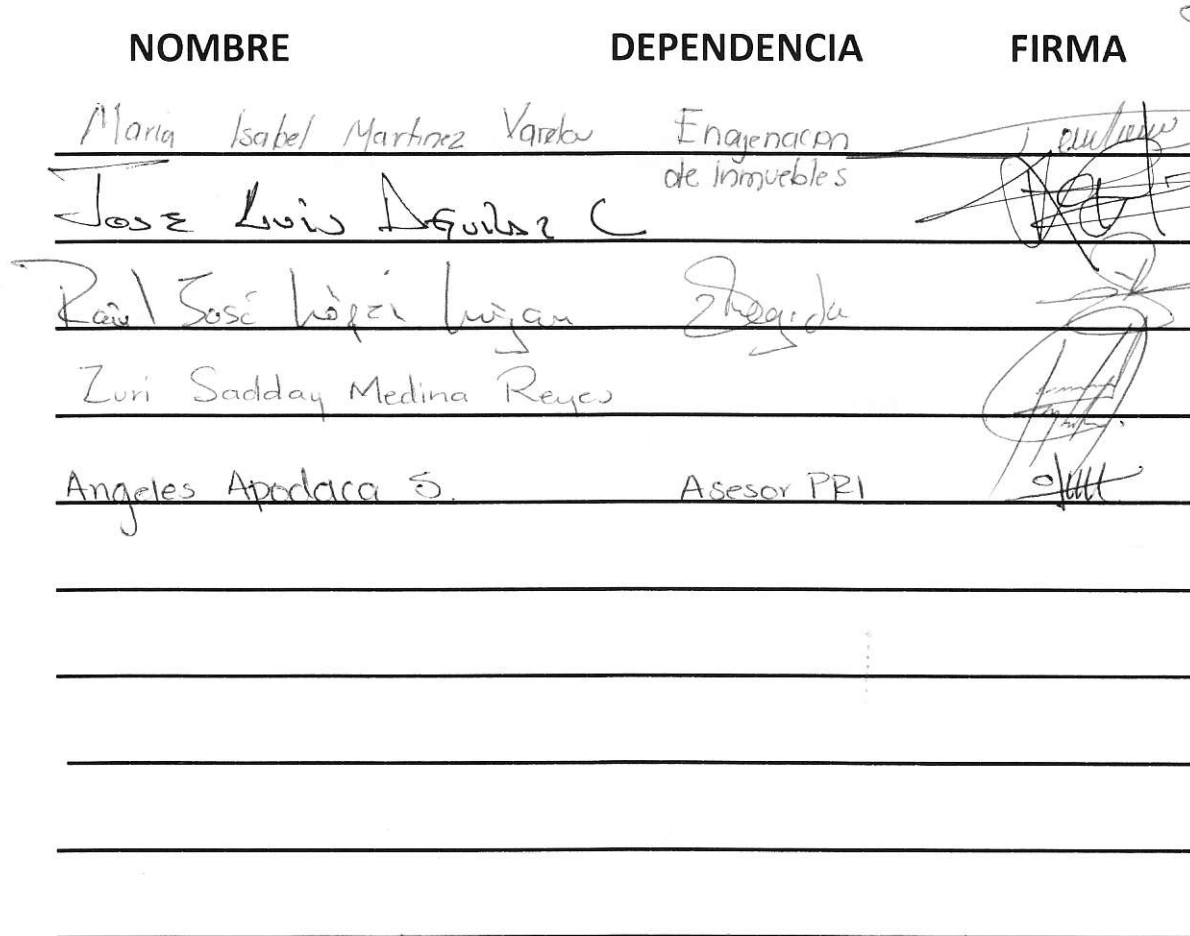 NOMBRE DEPENDENCIA FIRMA
Maria Isabel Martinez Varela Enajenacon
de inmuebles
Jose Luis Aguilar C
Raúl José López Luján
Zuri Sadday Medina Reyes
Angeles Apodaca S. Asesor PRI